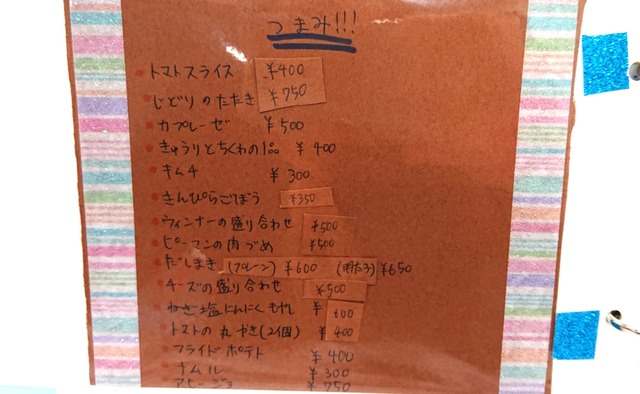 つまみ!!!
トマトスライス ¥400
じどりのたたき ¥750
カプレーゼ ¥500
きゅうりとちくわの ¥400
キムチ ¥300
きんぴらごぼう ¥350
ウィンナーの盛り合わせ ¥500
ピーマンの肉づめ ¥500
だしまき (プレーン) ¥600 (明たろ) ¥650
チーズの盛り合わせ ¥500
ねぎ塩にんにくもやし ¥
トマトの丸やき(2個) ¥400
フライドポテト ¥400
ナムル ¥300
アヒージョ ¥750